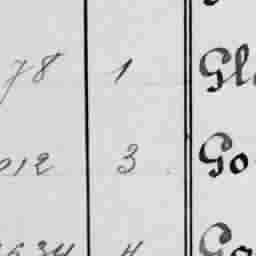 78 1 Gl
012 3 Go
34 4 Ga